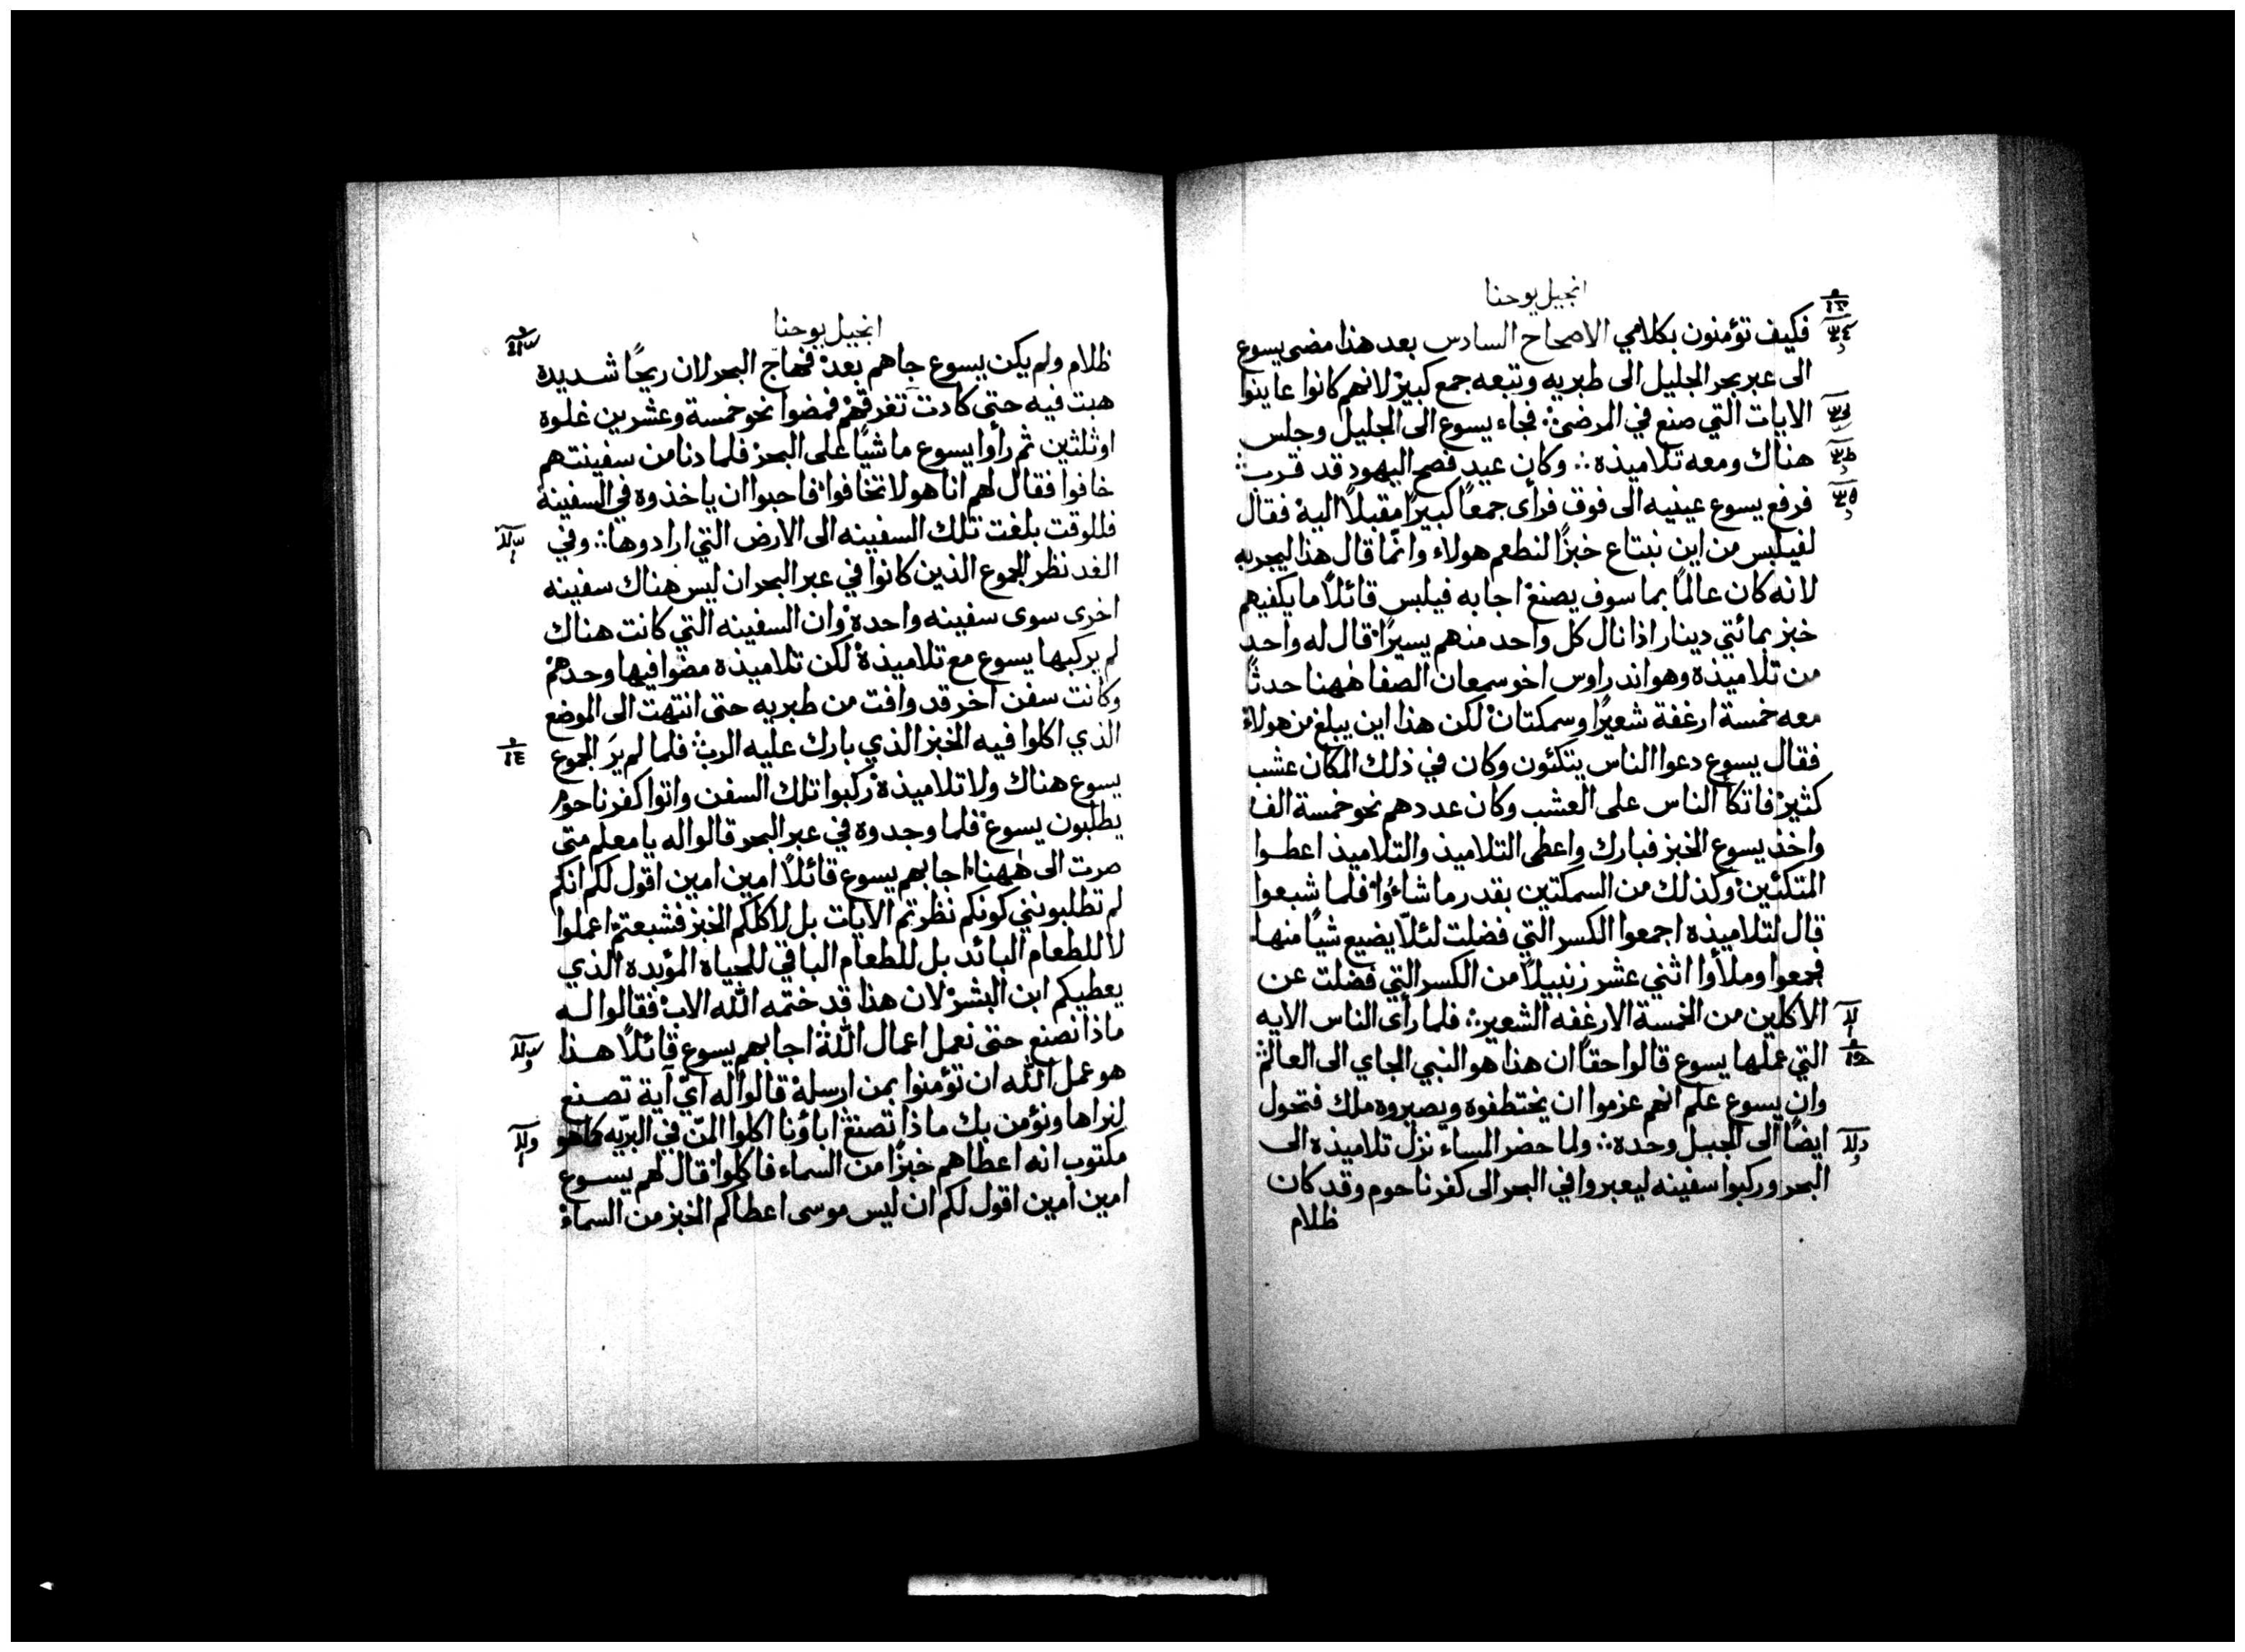 انجيل يوحنا
فكيف تؤمنون بكلامي الاصحاح السادس بعد هذا مضى يسوع
الى عبر بحر الجليل الى طبريه وتبعه جمع كبير لانهم كانوا عاينوا
الايات التي صنع في المرضى فجاء يسوع الى الجليل وجلس
هناك ومعه تلاميذه ∴ وكان عيد فصح اليهود قد قرب
فرفع يسوع عينيه الى فوق فرأى جمعًا كبيرًا مقبلًا اليه فقال
لفيلبس من اين نبتاع خبزًا لنطعم هولاء وانّما قال هذا ليجربه
لانه كان عالمًا بما سوف يصنع اجابه فيلبس قائلًا ما يكفيهم
خبز بمائتي دينار اذا نال كل واحد منهم يسيرًا قال له واحد
من تلاميذه وهو اندراوس اخو سمعان الصفا هٰهنا حدثًا
معه خمسة ارغفة شعيرًا وسمكتان لكن هذا اين يبلغ من هولاء
فقال يسوع دعوا الناس يتكئون وكان في ذلك المكان عشب
كثير فاتكأ الناس على العشب وكان عددهم نحو خمسة الف
واخذ يسوع الخبز فبارك واعطى التلاميذ والتلاميذ اعطوا
المتكئين وكذلك من السمكتين بقدر ما شاءوا فلما شبعوا
قال لتلاميذه اجمعوا الكسر التي فضلت لئلّا يضيع شيًا منها
فجمعوا وملأوا اثني عشر زنبيلًا من الكسر التي فضلت عن
الاكلين من الخمسة الارغفه الشعير ∴ فلما رأى الناس الايه
التي عملها يسوع قالوا حقًا ان هذا هو النبي الجاي الى العالم
وان يسوع علم انهم عزموا ان يختطفوه ويصيروه ملك فتحول
ايضًا الى الجبل وحده ∴ ولما حضر المساء نزل تلاميذه الى
البحر وركبوا سفينه ليعبروا في البحر الى كفرناحوم وقد كان
ظلام
انجيل يوحنا
ظلام ولم يكن يسوع جاهم بعد فهاج البحر لان ريحًا شديده
هبت فيه حتى كادت تغرقهم فمضوا نحو خمسة وعشرين غلوه
او ثلثين ثم رأوا يسوع ماشيًا على البحر فلما دنا من سفينتهم
خافوا فقال لهم انا هو لا تخافوا فاحبوا ان ياخذوه في السفينة
فللوقت بلغت تلك السفينه الى الارض التي ارادوها ∴ وفي
الغد نظر الجموع الذين كانوا في عبر البحر ان ليس هناك سفينه
اخرى سوى سفينه واحدة وان السفينه التي كانت هناك
لم يركبها يسوع مع تلاميذه لكن تلاميذه مضوا فيها وحدهم
وكانت سفن اخر قد وافت من طبريه حتى انتهت الى الموضع
الذي اكلوا فيه الخبز الذي بارك عليه الرب فلما لم يرَ الجموع
يسوع هناك ولا تلاميذه ركبوا تلك السفن واتوا كفرناحوم
يطلبون يسوع فلما وجدوه في عبر البحر قالوا له يا معلم متى
صرت الى هٰهنا اجابهم يسوع قائلًا امين امين اقول لكم انكم
لم تطلبونني كونكم نظرتم الايات بل لاكلكم الخبز فشبعتم اعملوا
لا للطعام البائد بل للطعام الباقي للحياه المؤبده الذي
يعطيكم ابن البشر لان هذا قد ختمه الله الاب فقالوا له
ماذا نصنع حتى نعمل اعمال الله اجابهم يسوع قائلًا هذا
هو عمل الله ان تؤمنوا بمن ارسله قالوا له ايّ آية تصنع
لنراها ونؤمن بك ماذا تصنع اباؤنا اكلوا المنّ في البريّه كما هو
مكتوب انه اعطاهم خبزًا من السماء فاكلوا قال لهم يسوع
امين امين اقول لكم ان ليس موسى اعطاكم الخبز من السماء